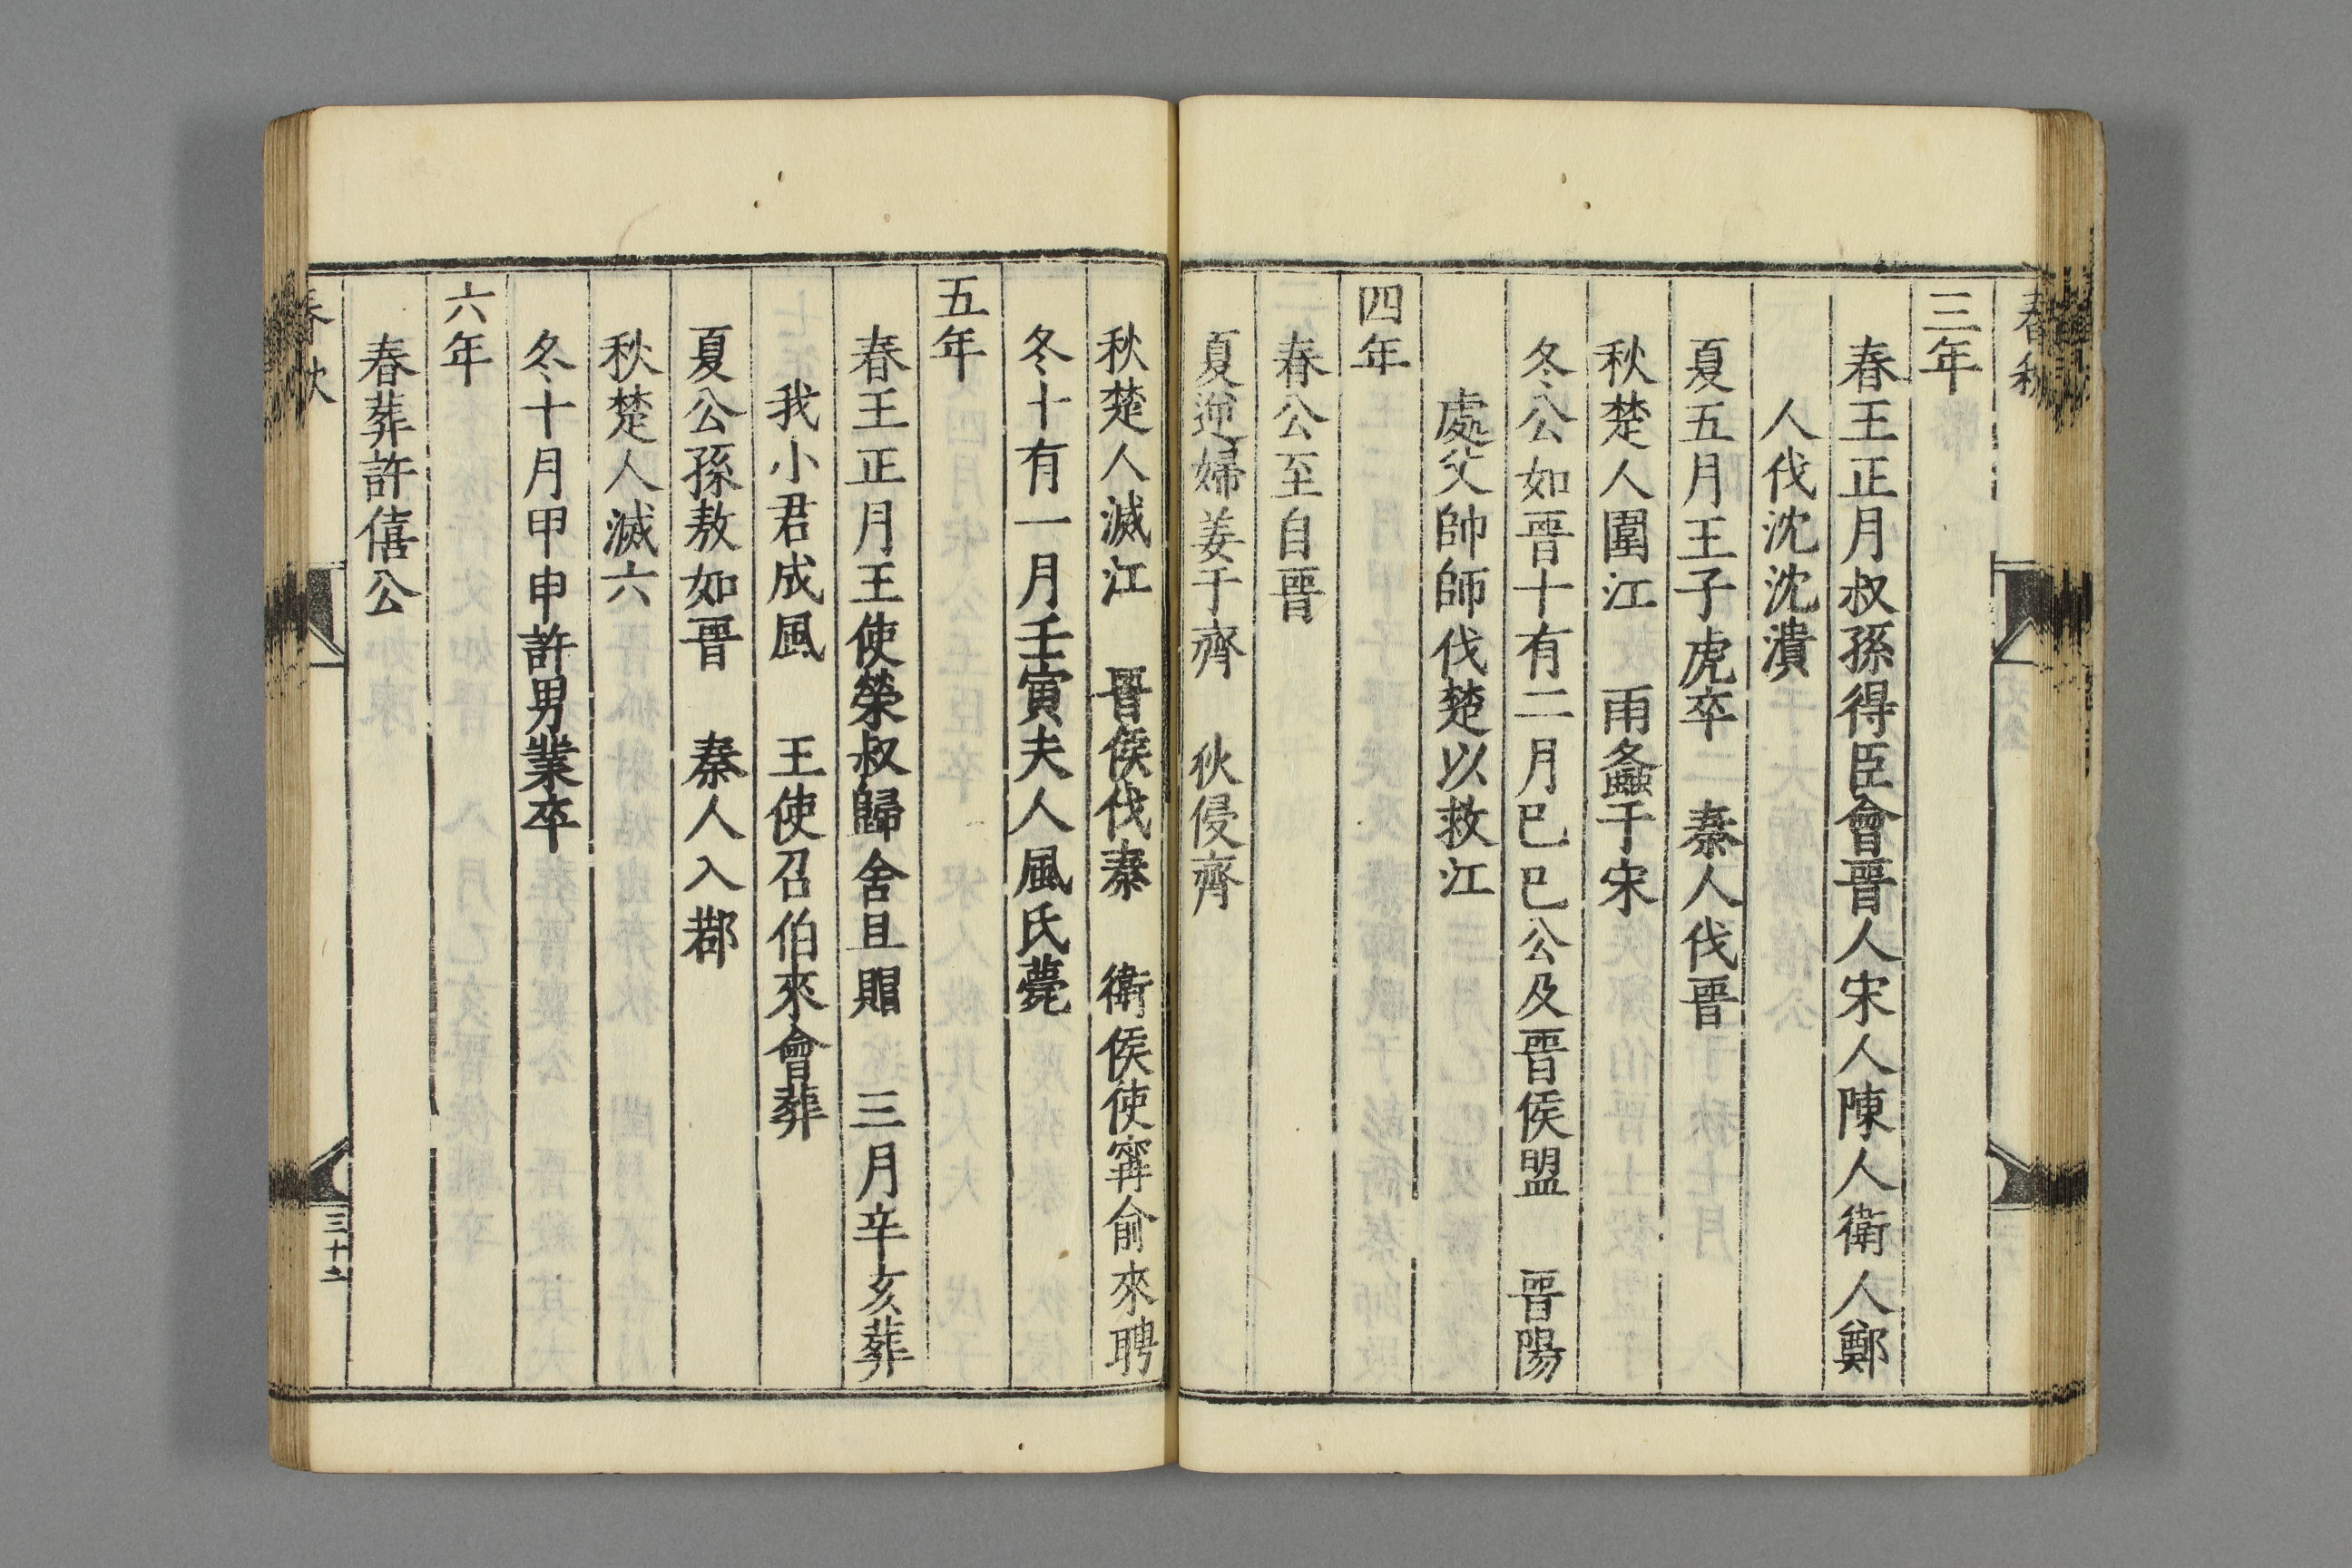 春秋
三年
春王正月叔孫得臣會晉人宋人陳人衛人鄭
人伐沈沈潰
夏五月王子虎卒 秦人伐晉
秋楚人圍江 雨螽于宋
冬公如晉十有二月巳巳公及晉侯盟 晉陽
處父帥師伐楚以救江
四年
春公至自晉
夏逆婦姜于齊 狄侵齊
秋楚人滅江 晉侯伐秦 衛侯使甯俞來聘
冬十有一月壬寅夫人風氏薨
五年
春王正月王使榮叔歸含且賵 三月辛亥葬
我小君成風 王使召伯來會葬
夏公孫敖如晉 秦人入鄀
秋楚人滅六
冬十月甲申許男業卒
六年
春葬許僖公
春秋
三十二